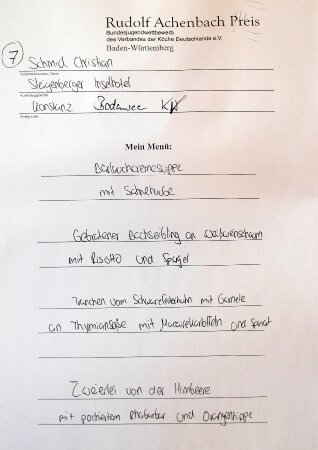 Rudolf Achenbach Preis
Bundesjugendwettbewerb
des Verbandes der Köche Deutschlands e.V.
Baden-Württemberg
7
Schmid Christian
Steigenberger Inselhotel
Konstanz Bodensee
Mein Menü:
Bärlauchcremesuppe
mit Sahnehaube
Gebratener Bachsaibling an
mit Risotto und Spargel
Tranchen vom Schwarzfederhuhn mit Garnele
an Thymiansoße mit Macairekartoffeln und Spinat
Zweierlei von der Himbeere
mit pochiertem Rhabarber und Orangenhippe